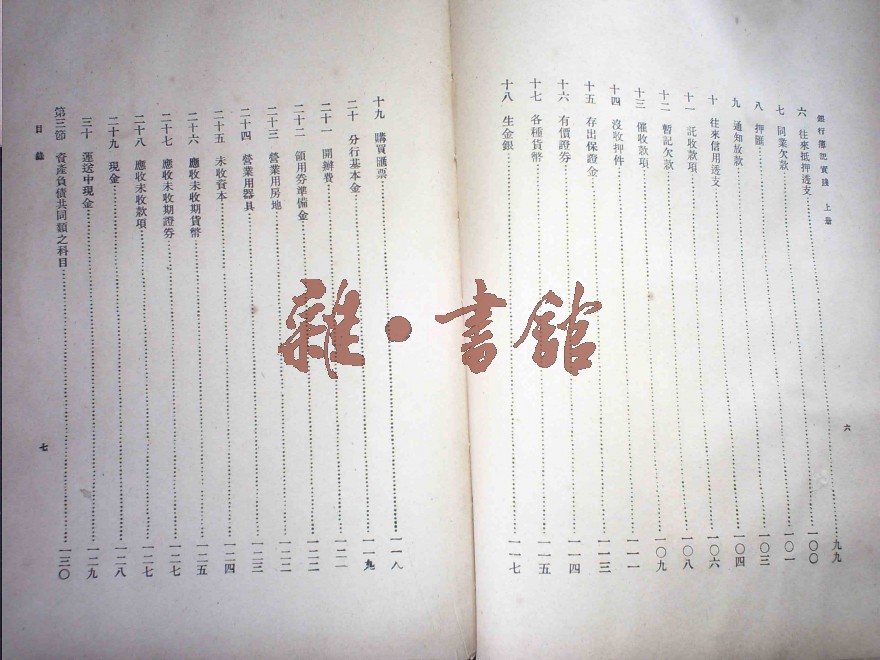 銀行簿記實踐 上册
六 往來抵押透支……九九
七 同業欠款……一〇〇
八 押匯……一〇一
九 通知放款……一〇三
十 往來信用透支……一〇四
十一 託收款項……一〇六
十二 暫記欠款……一〇八
十三 催收款項……一〇九
十四 沒收押件……一一一
十五 存出保證金……一一三
十六 有價證券……一一四
十七 各種貨幣……一一五
十八 生金銀……一一七
六
十九 購買匯票……一一八
二十 分行基本金……一一九
二十一 開辦費……一二一
二十二 領用券準備金……一二二
二十三 營業用房地……一二二
二十四 營業用器具……一二三
二十五 未收資本……一二四
二十六 應收未收期貨幣……一二五
二十七 應收未收期證券……一二七
二十八 應收未收款項……一二七
二十九 現金……一二八
三十 運送中現金……一二九
第三節 資產負債共同類之科目……一三〇
目錄
七
雜·書館